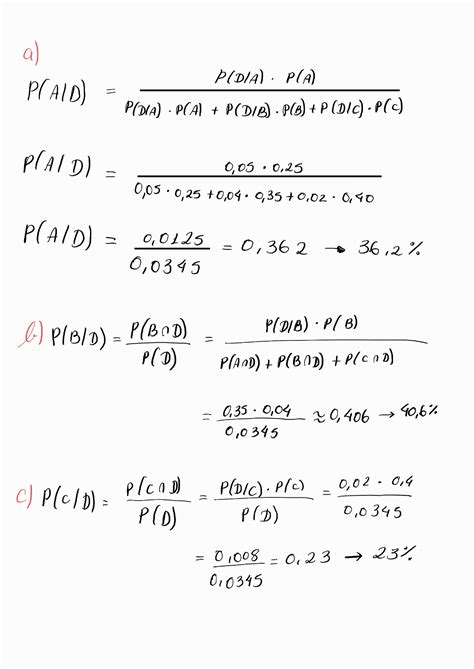 a)
P(A/D) = P(D/A) · P(A) / P(D/A) · P(A) + P(D/B) · P(B) + P(D/C) · P(C)
P(A/D) = 0,05 · 0,25 / 0,05 · 0,25 + 0,04 · 0,35 + 0,02 · 0,40
P(A/D) = 0,0125 / 0,0345 = 0,362 → 36,2%
b) P(B/D) = P(B∩D) / P(D) = P(D/B) · P(B) / P(A∩D) + P(B∩D) + P(C∩D)
= 0,35 · 0,04 / 0,0345 ≈ 0,406 → 40,6%
c) P(C/D) = P(C∩D) / P(D) = P(D/C) · P(C) / P(D) = 0,02 · 0,4 / 0,0345
= 0,008 / 0,0345 = 0,23 → 23%